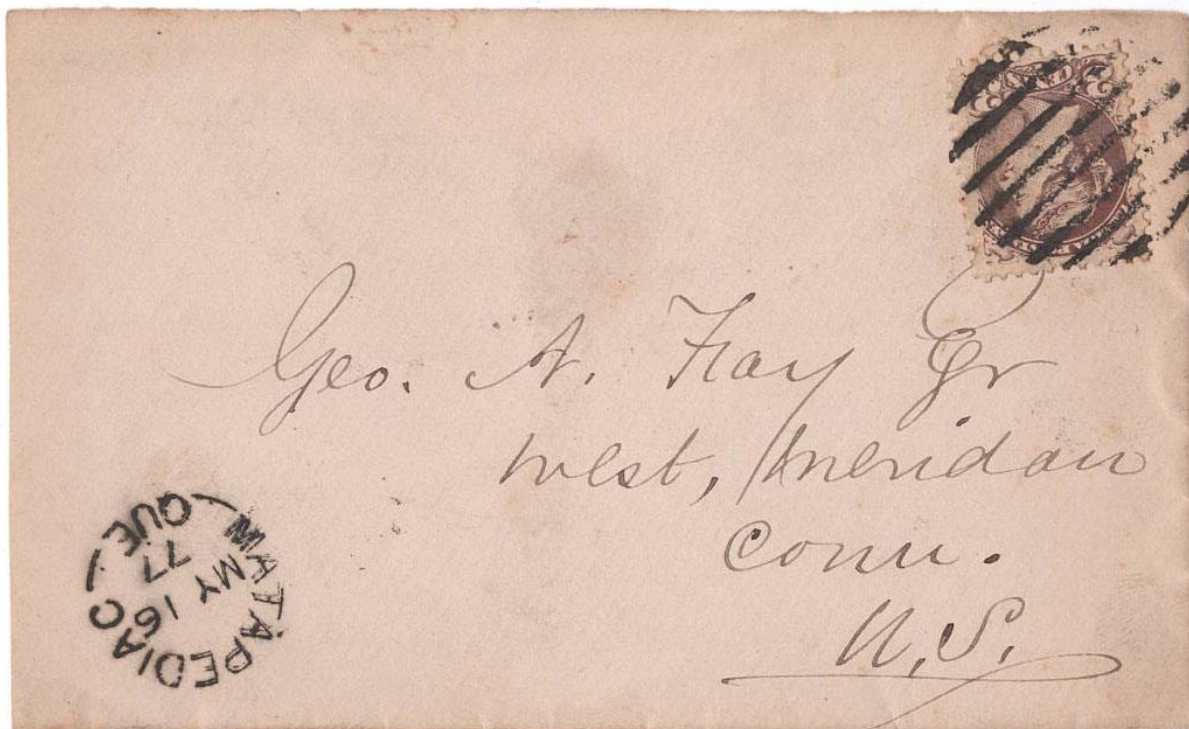 Geo. A. Fay Jr
West, Meridan
Conn.
U.S.
MATAPEDIAC
MY 16
77
QUE